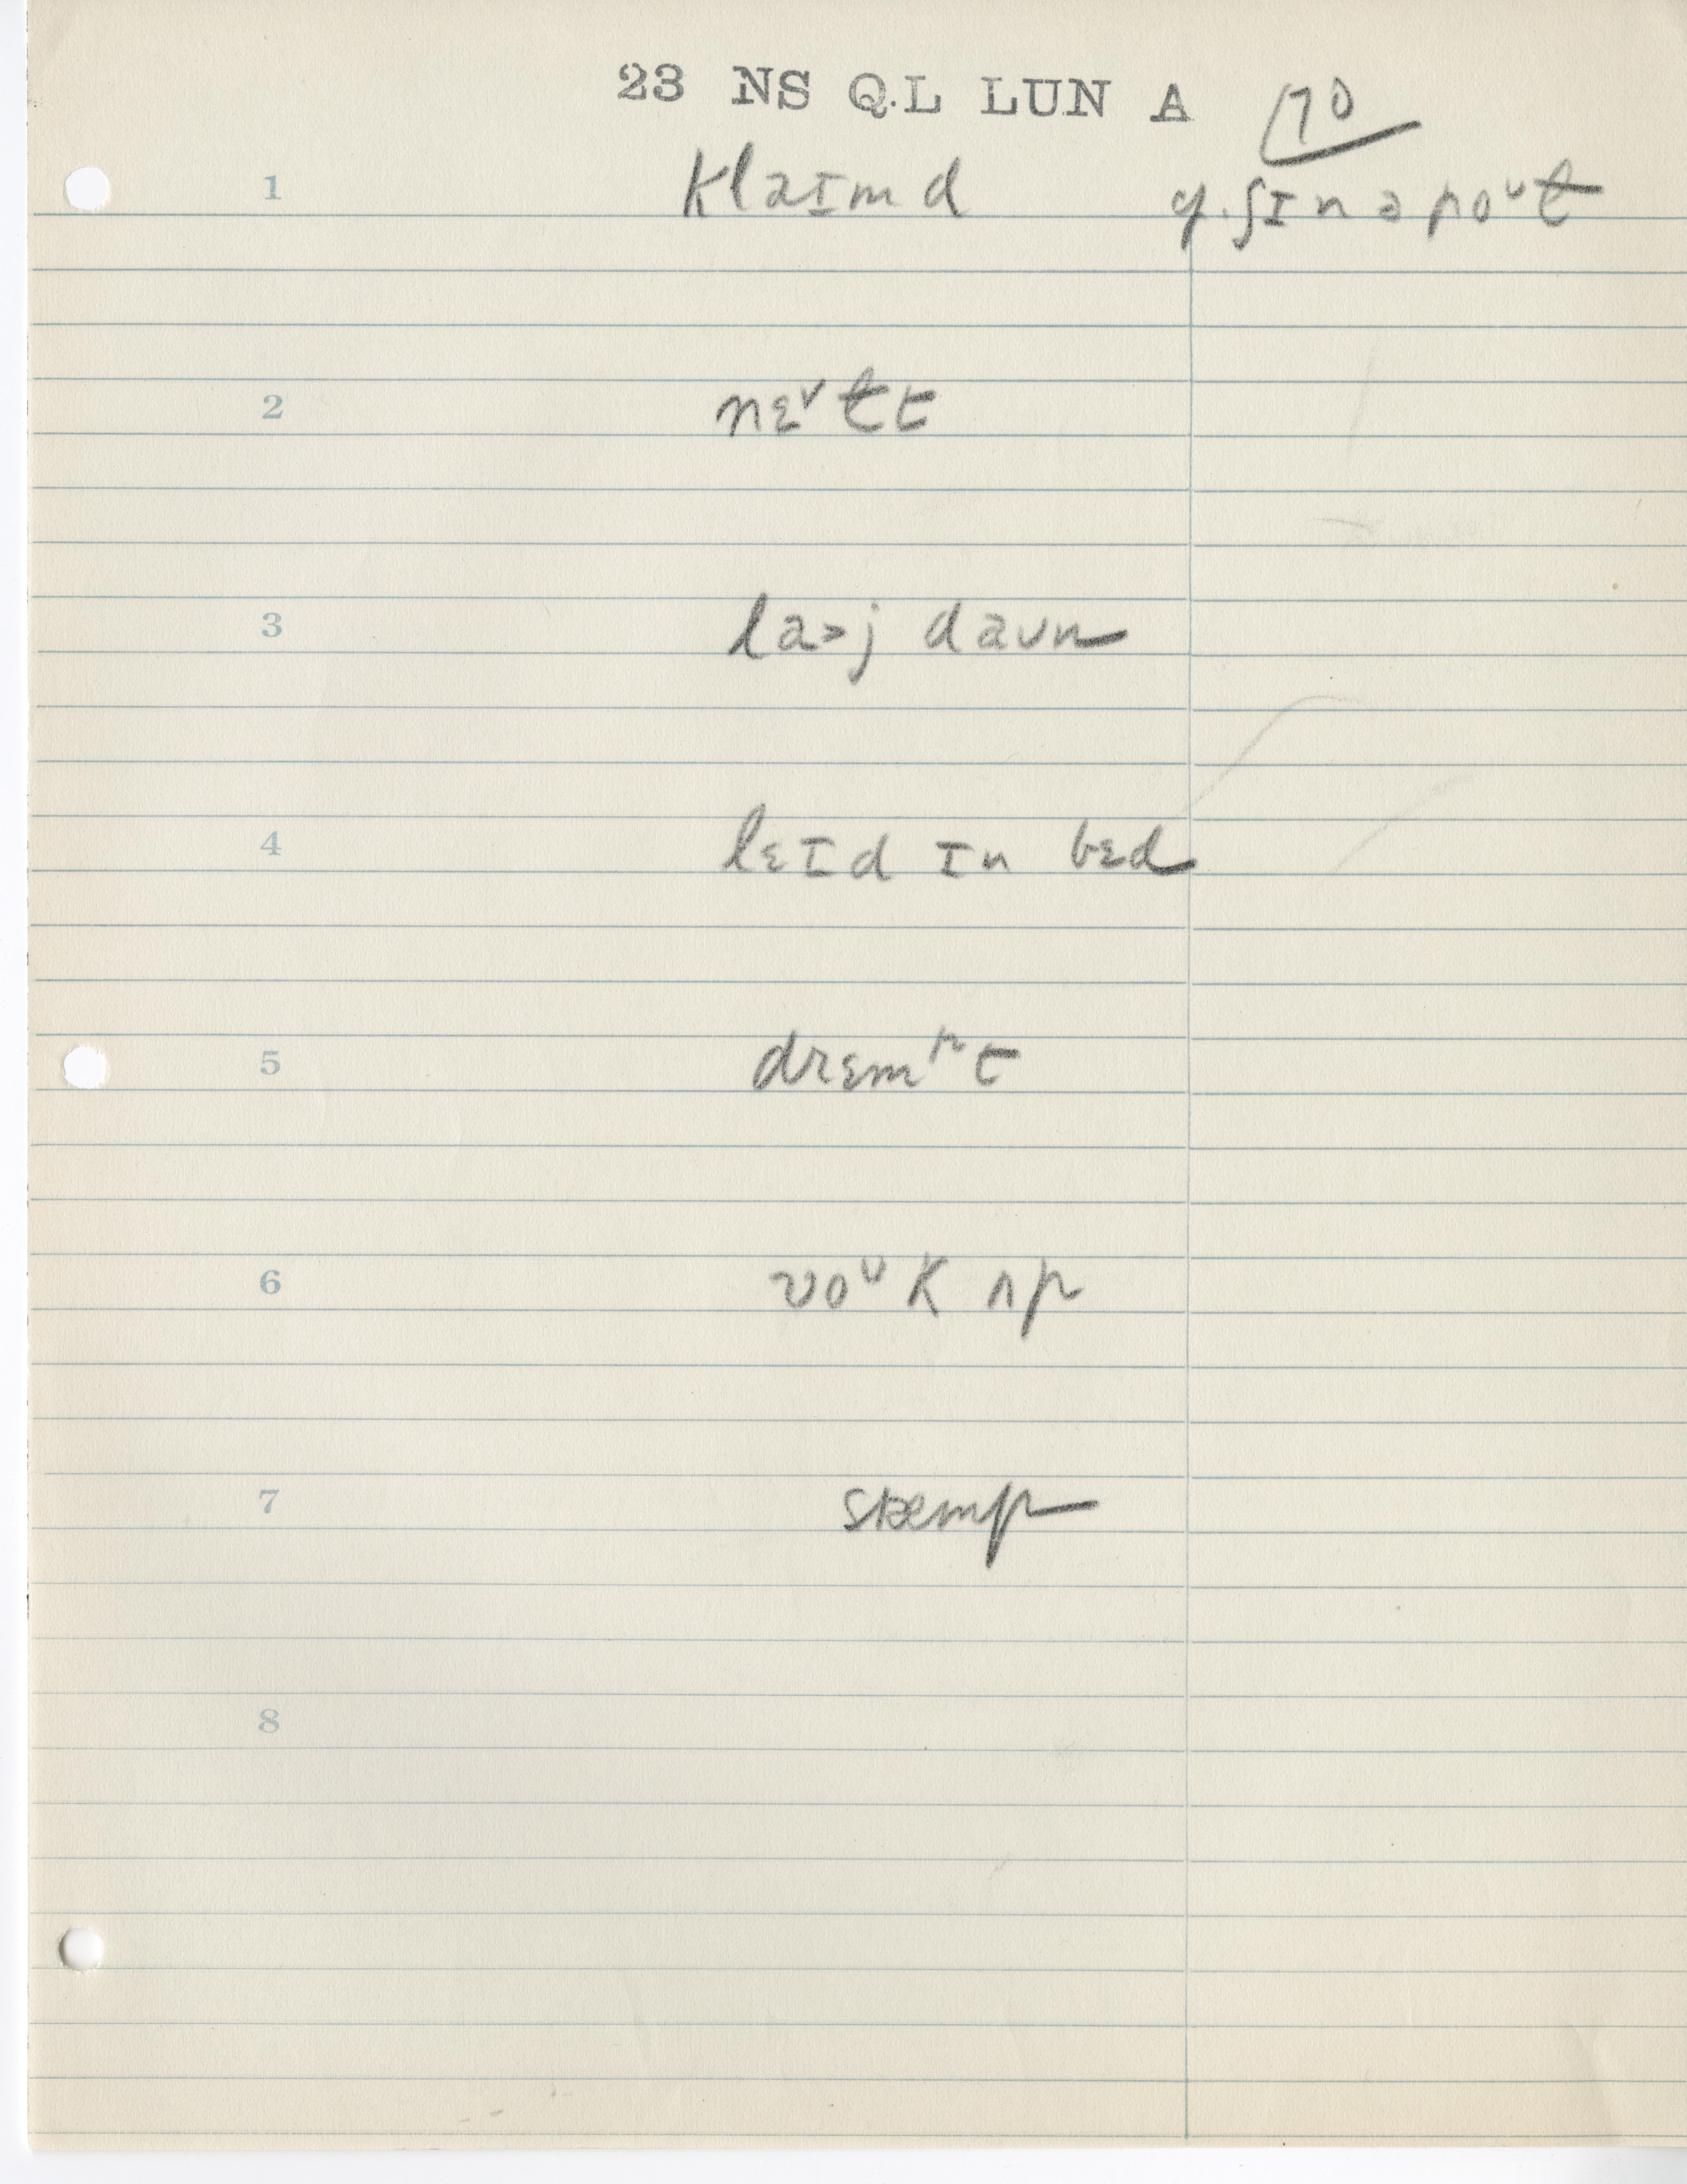 23 NS Q.L LUN A 70
1 klaɪmd ʃɪnəpoᴜt
2 nɛᵛtt
3 la>j daᴜn
4 lɛɪd ɪn bɛd
5 drɛmᵖt
6 woᶸk ʌp
7 stæmp
8